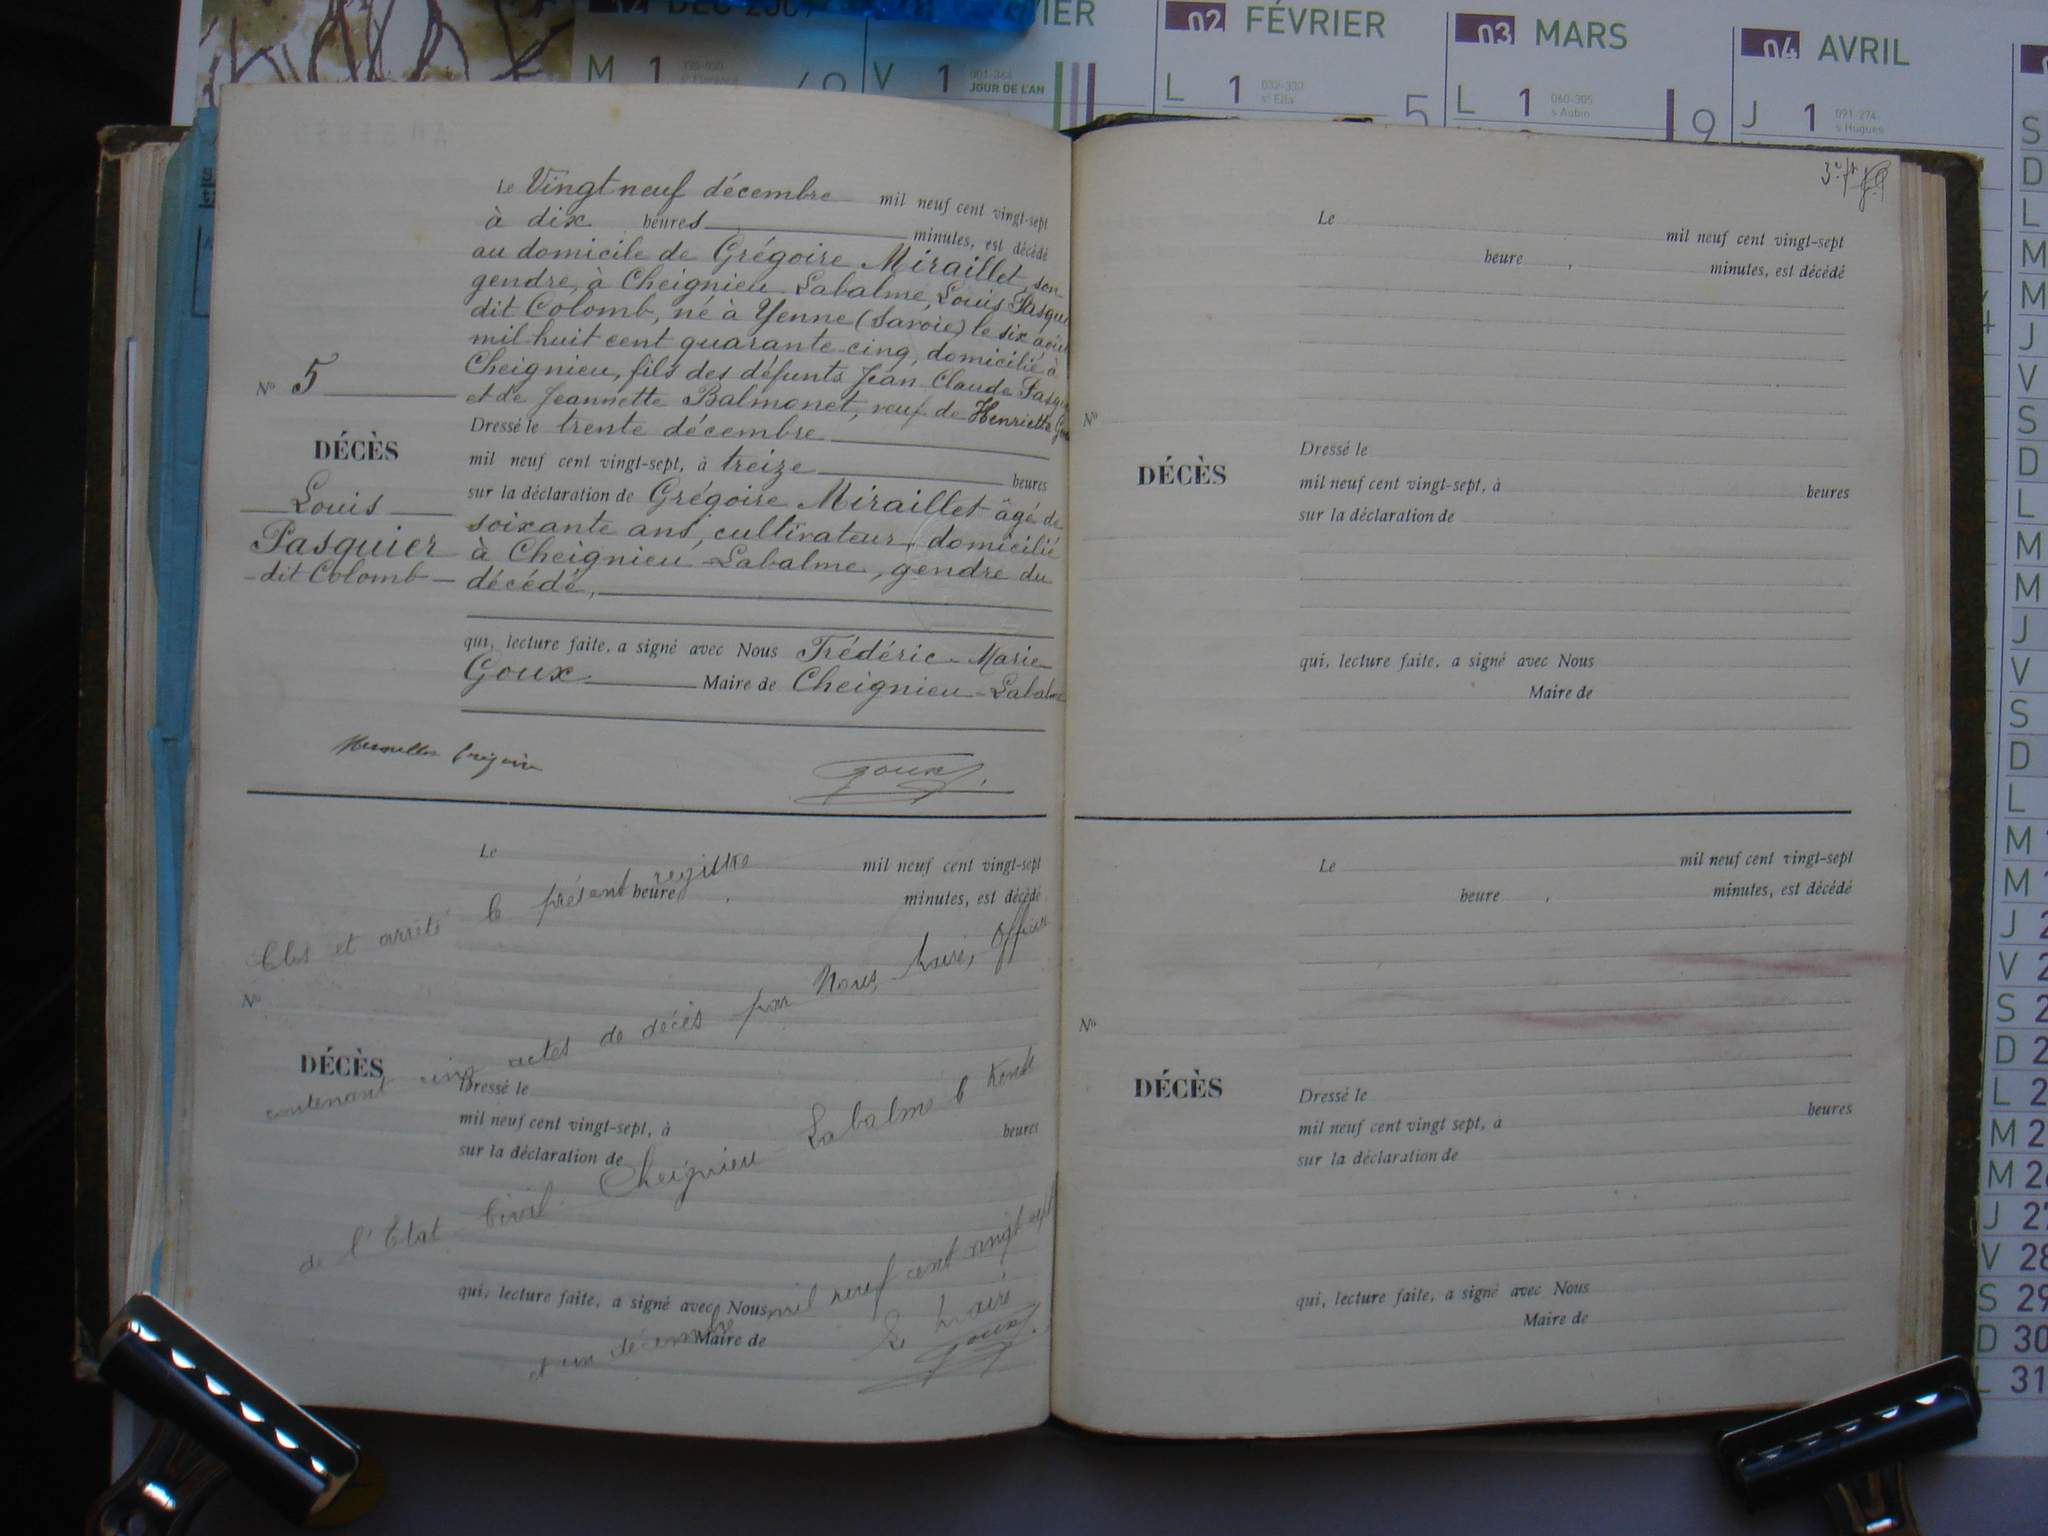 DEC 2009
VIER
02 FÉVRIER
03 MARS
04 AVRIL
M 1
V 1 001-364
JOUR DE L'AN
L 1 032-333
se Ella
5
L 1 060-305
s Aubin
9
J 1 091-274
s Hugues
Le Vingt neuf décembre mil neuf cent vingt-sept
à dix heures minutes, est décédé
au domicile de Grégoire Miraillet, son
gendre, à Cheignieu-Labalme, Louis Pasqui
dit Colomb, né à Yenne (Savoie) le six août
mil huit cent quarante cinq, domicilié à
Cheignieu, fils des défunts Jean Claude Pasqui
et de Jeannette Balmonet, veuf de Henriette
No 5
DÉCÈS
Louis
Pasquier
-dit Colomb-
Dressé le trente décembre
mil neuf cent vingt-sept, à treize heures
sur la déclaration de Grégoire Miraillet âgé de
soixante ans, cultivateur, domicilié
à Cheignieu-Labalme, gendre du
décédé,
qui, lecture faite, a signé avec Nous Frédéric-Marie
Goux Maire de Cheignieu-Labalme
Grégoire
Goux
Le mil neuf cent vingt-sept
heure , minutes, est décédé
No
DÉCÈS
Dressé le
mil neuf cent vingt-sept, à heures
sur la déclaration de
qui, lecture faite, a signé avec Nous
Maire de
Clos et arrêté le présent registre
contenant cinq actes de décès par Nous, Maire, Officier
de l'Etat Civil. Cheignieu-Labalme le trente
et un décembre mil neuf cent vingt sept
Le Maire
Goux
Le mil neuf cent vingt-sept
heure , minutes, est décédé
No
DÉCÈS
Dressé le
mil neuf cent vingt-sept, à heures
sur la déclaration de
qui, lecture faite, a signé avec Nous
Maire de
Le mil neuf cent vingt-sept
heure , minutes, est décédé
No
DÉCÈS
Dressé le
mil neuf cent vingt sept, à heures
sur la déclaration de
qui, lecture faite, a signé avec Nous
Maire de
S
D
L
M
M
J
V
S
D
L
M
M
J
V
S
D
L
M
J 2
V 2
S 2
D 2
L 2
M 2
M 26
J 27
V 28
S 29
D 30
L 31